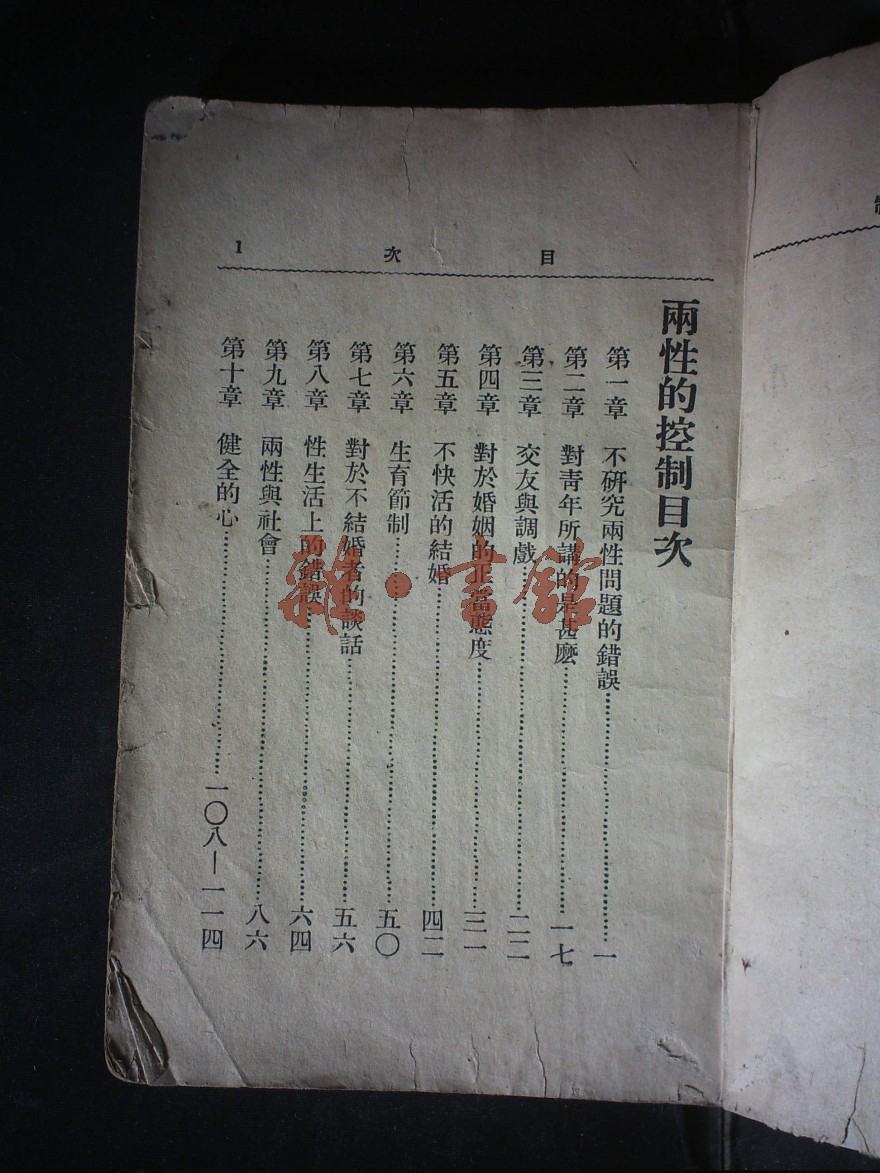 目次 1
兩性的控制目次
第一章 不研究兩性問題的錯誤……一
第二章 對靑年所講的是甚麼……一七
第三章 交友與調戲……二二
第四章 對於婚姻的正當態度……三一
第五章 不快活的結婚……四二
第六章 生育節制……五〇
第七章 對於不結婚者的談話……五六
第八章 性生活上的錯誤……六四
第九章 兩性與社會……八六
第十章 健全的心……一〇八—一一四
雜·書館